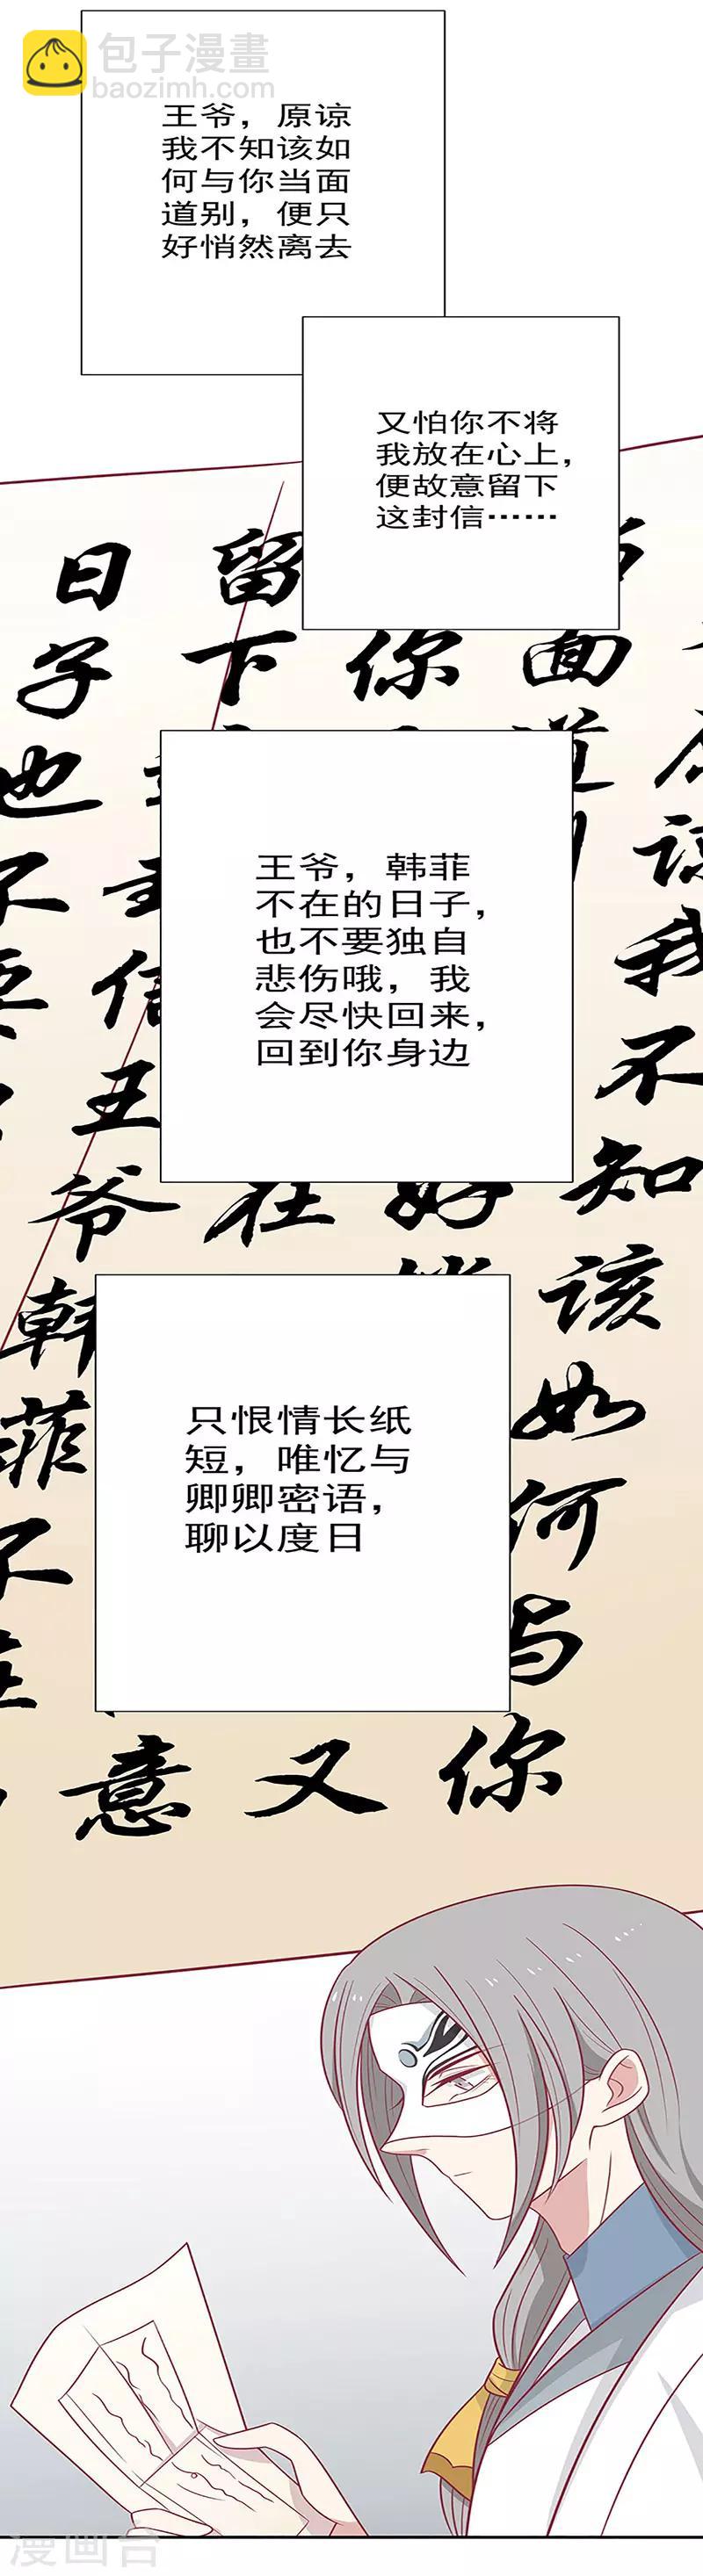 包子漫畫
baozimh.com
王爷，原谅
我不知该如
何与你当面
道别，便只
好悄然离去
又怕你不将
我放在心上，
便故意留下
这封信……
王爷，韩菲
不在的日子，
也不要独自
悲伤哦，我
会尽快回来，
回到你身边
只恨情长纸
短，唯忆与
卿卿密语，
聊以度日
原谅我不知该如何与你
面道
你
好
又
留下
在
意
信王爷韩菲不
日子也不要
漫画台